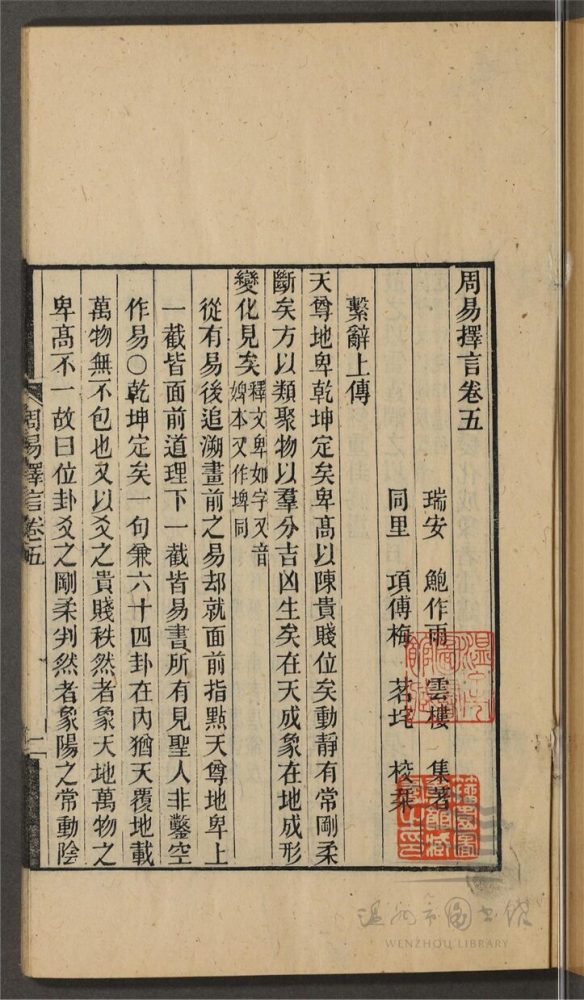 周易擇言卷五
瑞安　鮑作雨　雲樓　集著
同里　項傅梅　茗垞　校栞
繫辭上傳
天尊地卑乾坤定矣卑高以陳貴賤位矣動靜有常剛柔
斷矣方以類聚物以羣分吉凶生矣在天成象在地成形
變化見矣釋文卑如字又音
婢本又作埤同
從有易後追溯畫前之易却就面前指點天尊地卑上
一截皆面前道理下一截皆易書所有見聖人非鑿空
作易○乾坤定矣一句兼六十四卦在內猶天覆地載
萬物無不包也又以爻之貴賤秩然者象天地萬物之
卑高不一故曰位卦爻之剛柔判然者象陽之常動陰
周易擇言卷五
一
温州市圖書館
WENZHOU LIBRARY